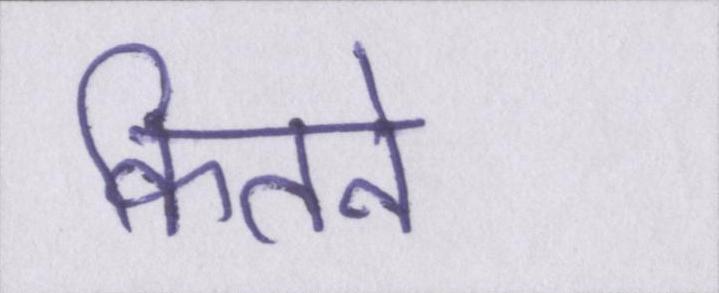 कितने